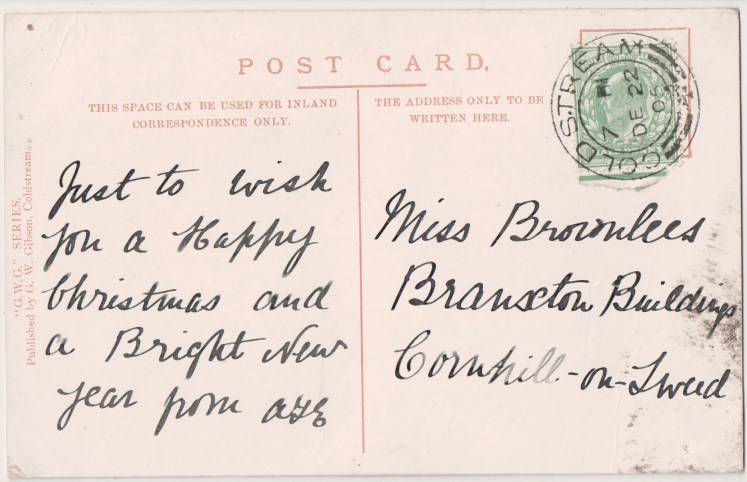 POST CARD.
THIS SPACE CAN BE USED FOR INLAND
CORRESPONDENCE ONLY.
THE ADDRESS ONLY TO BE
WRITTEN HERE.
COLDSTREAM
DE 22
"G.W.G." SERIES.
Published by G. W. Gibson, Coldstream.
Just to wish
you a Happy
Christmas and
a Bright New
year from
Miss Brownlees
Branxton Buildings
Cornhill-on-Tweed